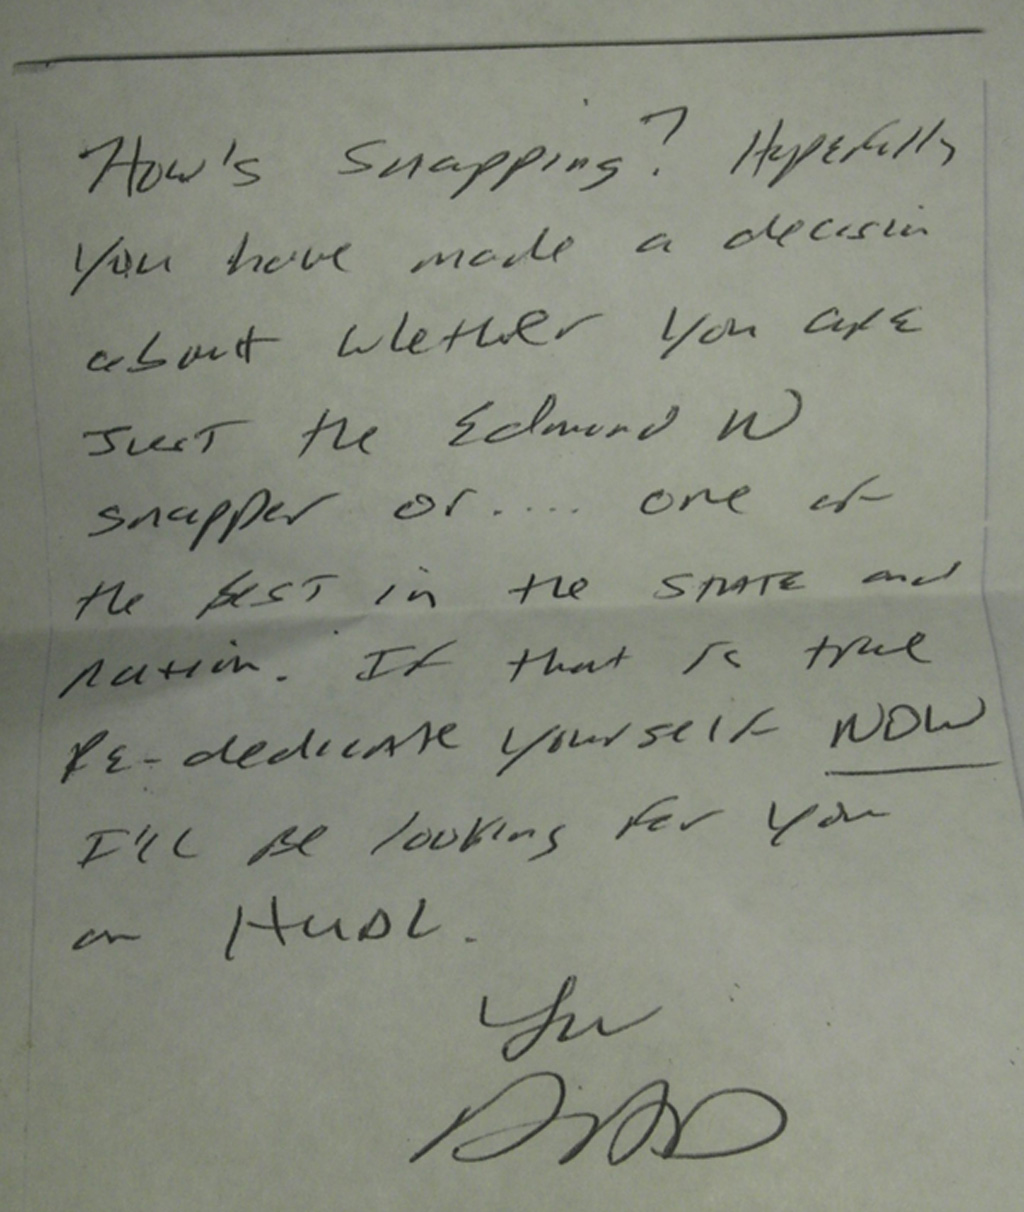 How's Snapping? Hopefully
you have made a decision
about whether you are
Just the Edmond N
snapper or.... one of
the BEST in the STATE and
nation. If that is true
Re-dedicate yourself NOW
I'll Be looking for you
on HUDL.